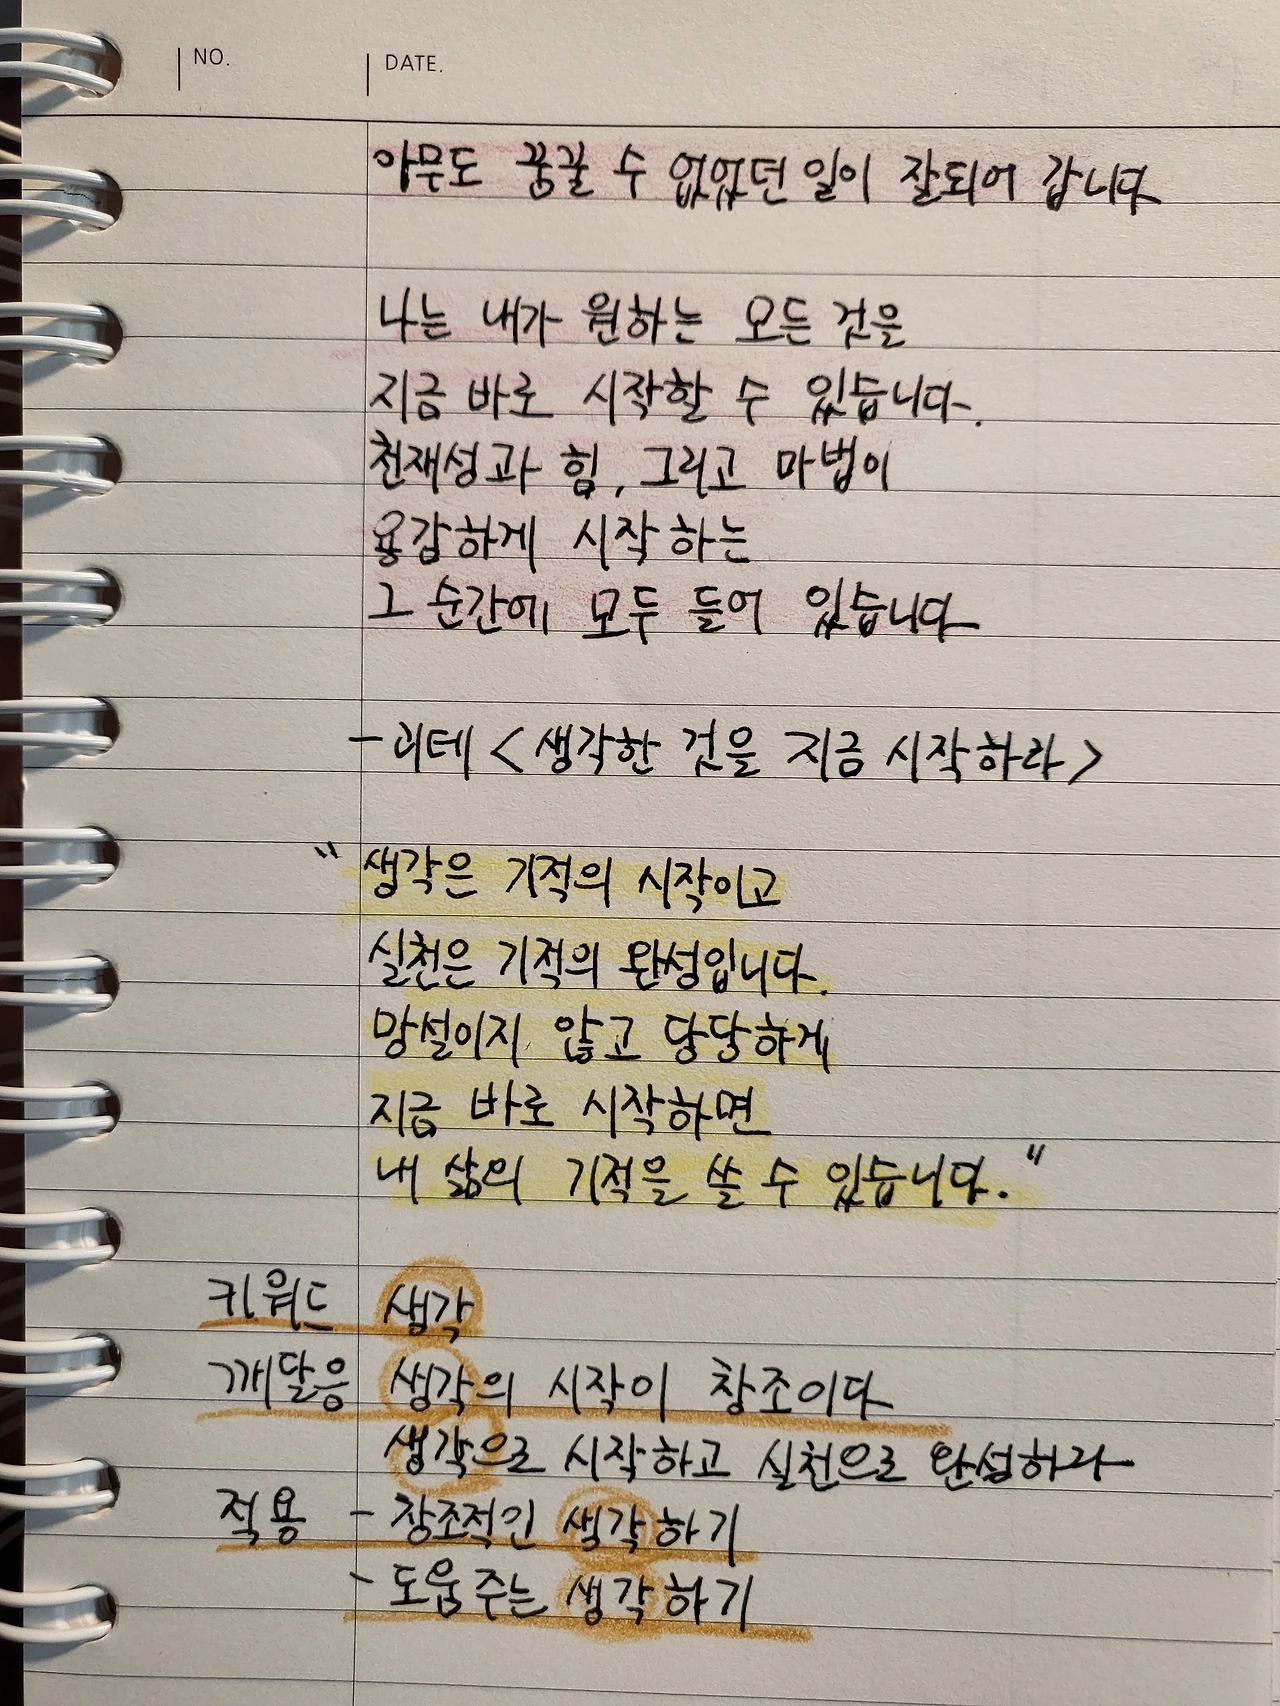 NO.
DATE.
아무도 꿈꿀 수 없었던 일이 잘되어 갑니다
나는 내가 원하는 모든 것을
지금 바로 시작할 수 있습니다.
천재성과 힘, 그리고 마법이
용감하게 시작하는
그 순간에 모두 들어 있습니다
- 괴테 <생각한 것을 지금 시작하라>
" 생각은 기적의 시작이고
실천은 기적의 완성입니다.
망설이지 않고 당당하게
지금 바로 시작하면
내 삶의 기적을 쓸 수 있습니다."
키워드 생각
깨달음 생각의 시작이 창조이다
생각으로 시작하고 실천으로 완성하라
적용 - 창조적인 생각하기
- 도움주는 생각하기